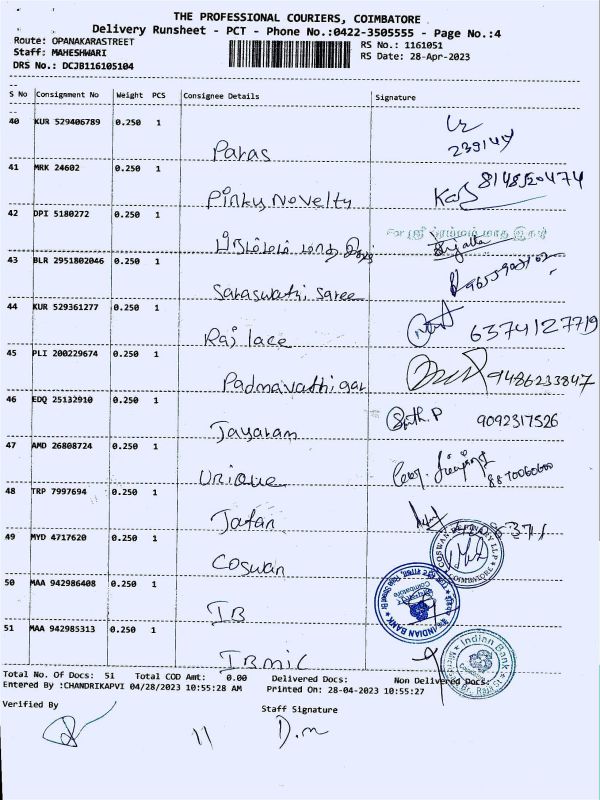 THE PROFESSIONAL COURIERS, COIMBATORE
Delivery Runsheet - PCT - Phone No.:0422-3505555 - Page No.:4
Route: OPANAKARASTREET
Staff: MAHESHWARI
DRS No.: DCJB116105104
RS No.: 1161051
RS Date: 28-Apr-2023
S No Consignment No Weight PCS Consignee Details Signature
40 KUR 529406789 0.250 1
Paras
239144
41 MRK 24602 0.250 1
Pinky Novelty
8148520474
42 DPI 5180272 0.250 1
43 BLR 2951802046 0.250 1
Saraswathi Saree
44 KUR 529361277 0.250 1
Raj lace
6374127719
45 PLI 200229674 0.250 1
Padmavathi gar
9486233847
46 EDQ 25132910 0.250 1
Jayaram
9092317526
47 AMD 26808724 0.250 1
Unique
8870060600
48 TRP 7997694 0.250 1
Jatan
49 MYD 4717620 0.250 1
Coswan
50 MAA 942986408 0.250 1
IB
INDIAN BANK
51 MAA 942985313 0.250 1
IB mic
Indian Bank
Total No. Of Docs: 51 Total COD Amt: 0.00 Delivered Docs: Non Delivered Docs:
Entered By :CHANDRIKAPVI 04/28/2023 10:55:28 AM Printed On: 28-04-2023 10:55:27
Verified By
Staff Signature
D.m